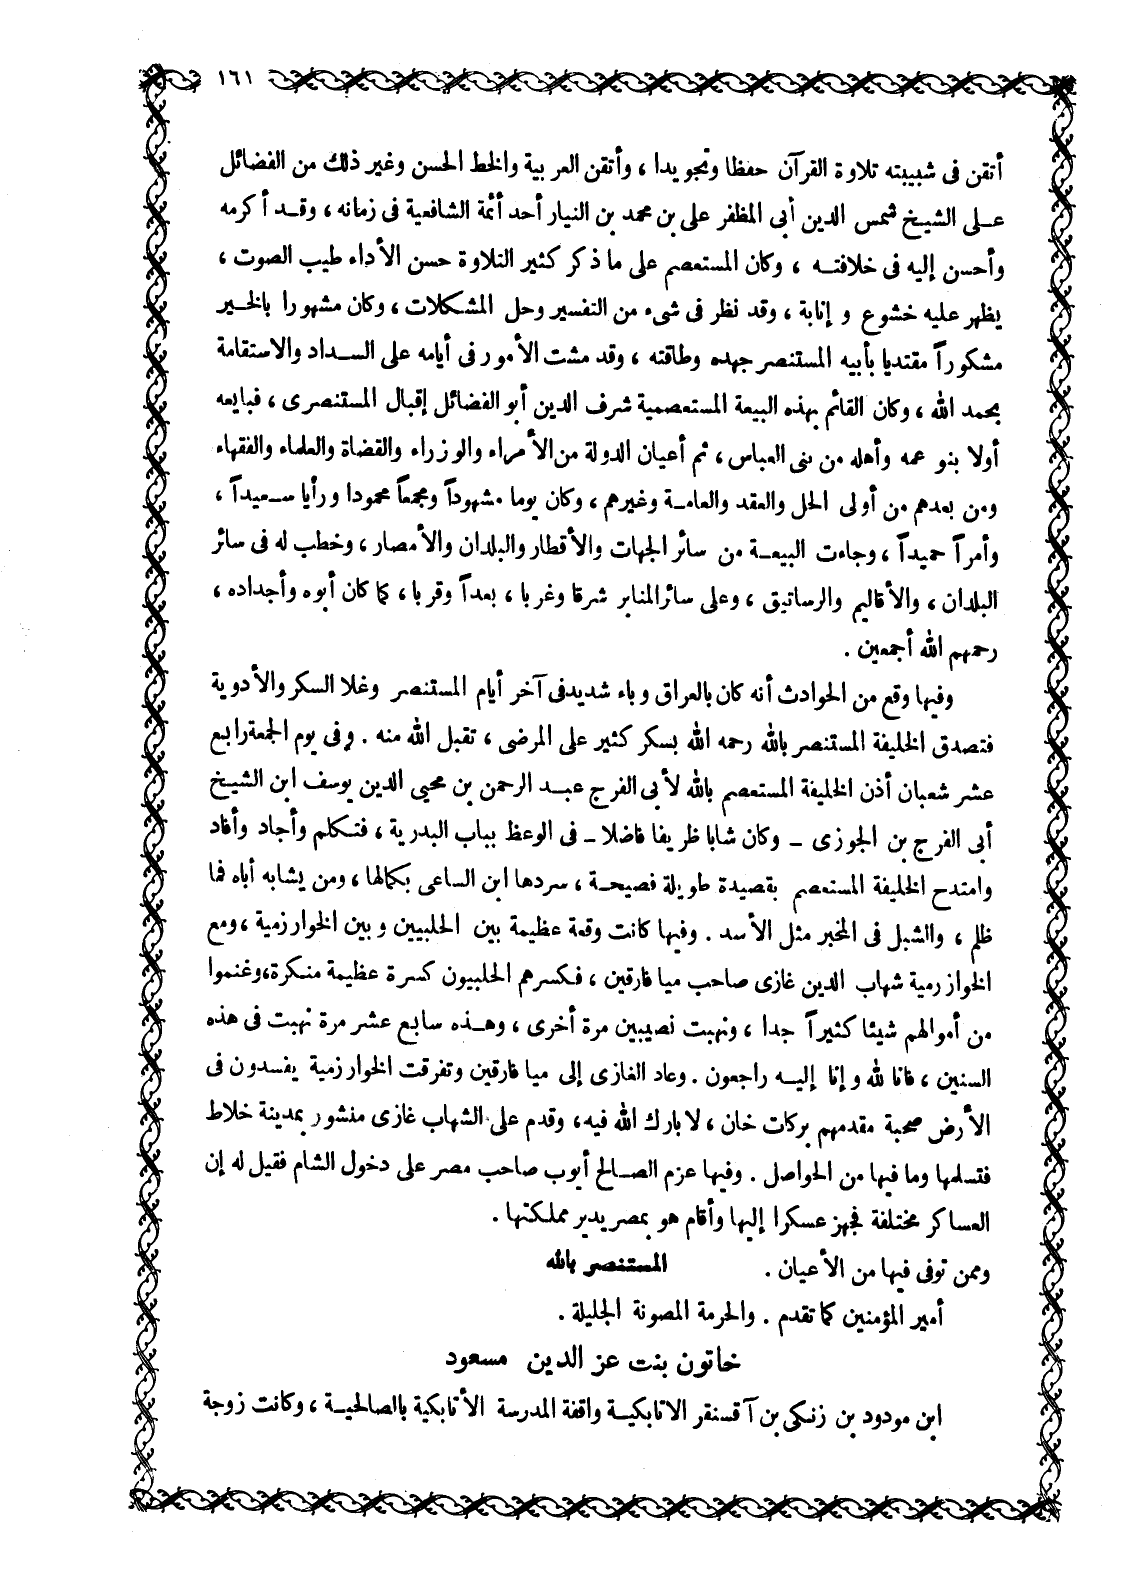 ١٦١
أتقن فى شبيبته تلاوة القرآن حفظا وتجويدا ، وأتقن العربية والخط الحسن وغير ذلك من الفضائل
على الشيخ شمس الدين أبى المظفر على بن محمد بن النيار أحد أئمة الشافعية فى زمانه ، وقد أكرمه
وأحسن إليه فى خلافته ، وكان المستعصم على ما ذكر كثير التلاوة حسن الأداء طيب الصوت ،
يظهر عليه خشوع و إنابة ، وقد نظر فى شىء من التفسير وحل المشكلات ، وكان مشهورا بالخير
مشكوراً مقتديا بأبيه المستنصر جهده وطاقته ، وقد مشت الأمور فى أيامه على السداد والاستقامة
بحمد الله ، وكان القائم بهذه البيعة المستعصمية شرف الدين أبو الفضائل إقبال المستنصرى ، فبايعه
أولا بنو عمه وأهله من بنى العباس ، ثم أعيان الدولة من الأمراء والوزراء والقضاة والعلماء والفقهاء
ومن بعدهم من أولى الحل والعقد والعامة وغيرهم ، وكان يوما مشهوداً ومجمعاً محمودا ورأيا سعيداً ،
وأمراً حميداً ، وجاءت البيعة من سائر الجهات والأقطار والبلدان والأمصار ، وخطب له فى سائر
البلدان ، والأقاليم والرساتيق ، وعلى سائر المنابر شرقا وغربا ، بعداً وقربا ، كما كان أبوه وأجداده ،
رحمهم الله أجمعين .
وفيها وقع من الحوادث أنه كان بالعراق وباء شديد فى آخر أيام المستنصر وغلا السكر والأدوية
فتصدق الخليفة المستنصر بالله رحمه الله بسكر كثير على المرضى ، تقبل الله منه . وفى يوم الجمعة رابع
عشر شعبان أذن الخليفة المستعصم بالله لأبى الفرج عبد الرحمن بن محيى الدين يوسف ابن الشيخ
أبى الفرج بن الجوزى ــ وكان شابا ظريفا فاضلا ــ فى الوعظ بباب البدرية ، فتكلم وأجاد وأفاد
وامتدح الخليفة المستعصم بقصيدة طويلة فصيحة ، سردها ابن الساعى بكمالها ، ومن يشابه أباه فما
ظلم ، والشبل فى المخبر مثل الأسد . وفيها كانت وقعة عظيمة بين الحلبيين وبين الخوارزمية ، ومع
الخوازرمية شهاب الدين غازى صاحب ميا فارقين ، فكسرهم الحلبيون كسرة عظيمة منكرة، وغنموا
من أموالهم شيئا كثيراً جدا ، ونهبت نصيبين مرة أخرى ، وهذه سابع عشر مرة نهبت فى هذه
السنين ، فانا لله و إنا إليه راجعون . وعاد الغازى إلى ميا فارقين وتفرقت الخوارزمية يفسدون فى
الأرض صحبة مقدمهم بركات خان ، لا بارك الله فيه، وقدم على الشهاب غازى منشور بمدينة خلاط
فتسلمها وما فيها من الحواصل . وفيها عزم الصالح أيوب صاحب مصر على دخول الشام فقيل له إن
العساكر مختلفة فجهز عسكرا إليها وأقام هو بمصر يدير مملكتها .
وممن توفى فيها من الأعيان . المستنصر بالله
أمير المؤمنين كما تقدم . والحرمة المصونة الجليلة .
خاتون بنت عز الدين مسعود
ابن مودود بن زنكى بن آقسنقر الاتابكية واقفة المدرسة الأتابكية بالصالحية ، وكانت زوجة